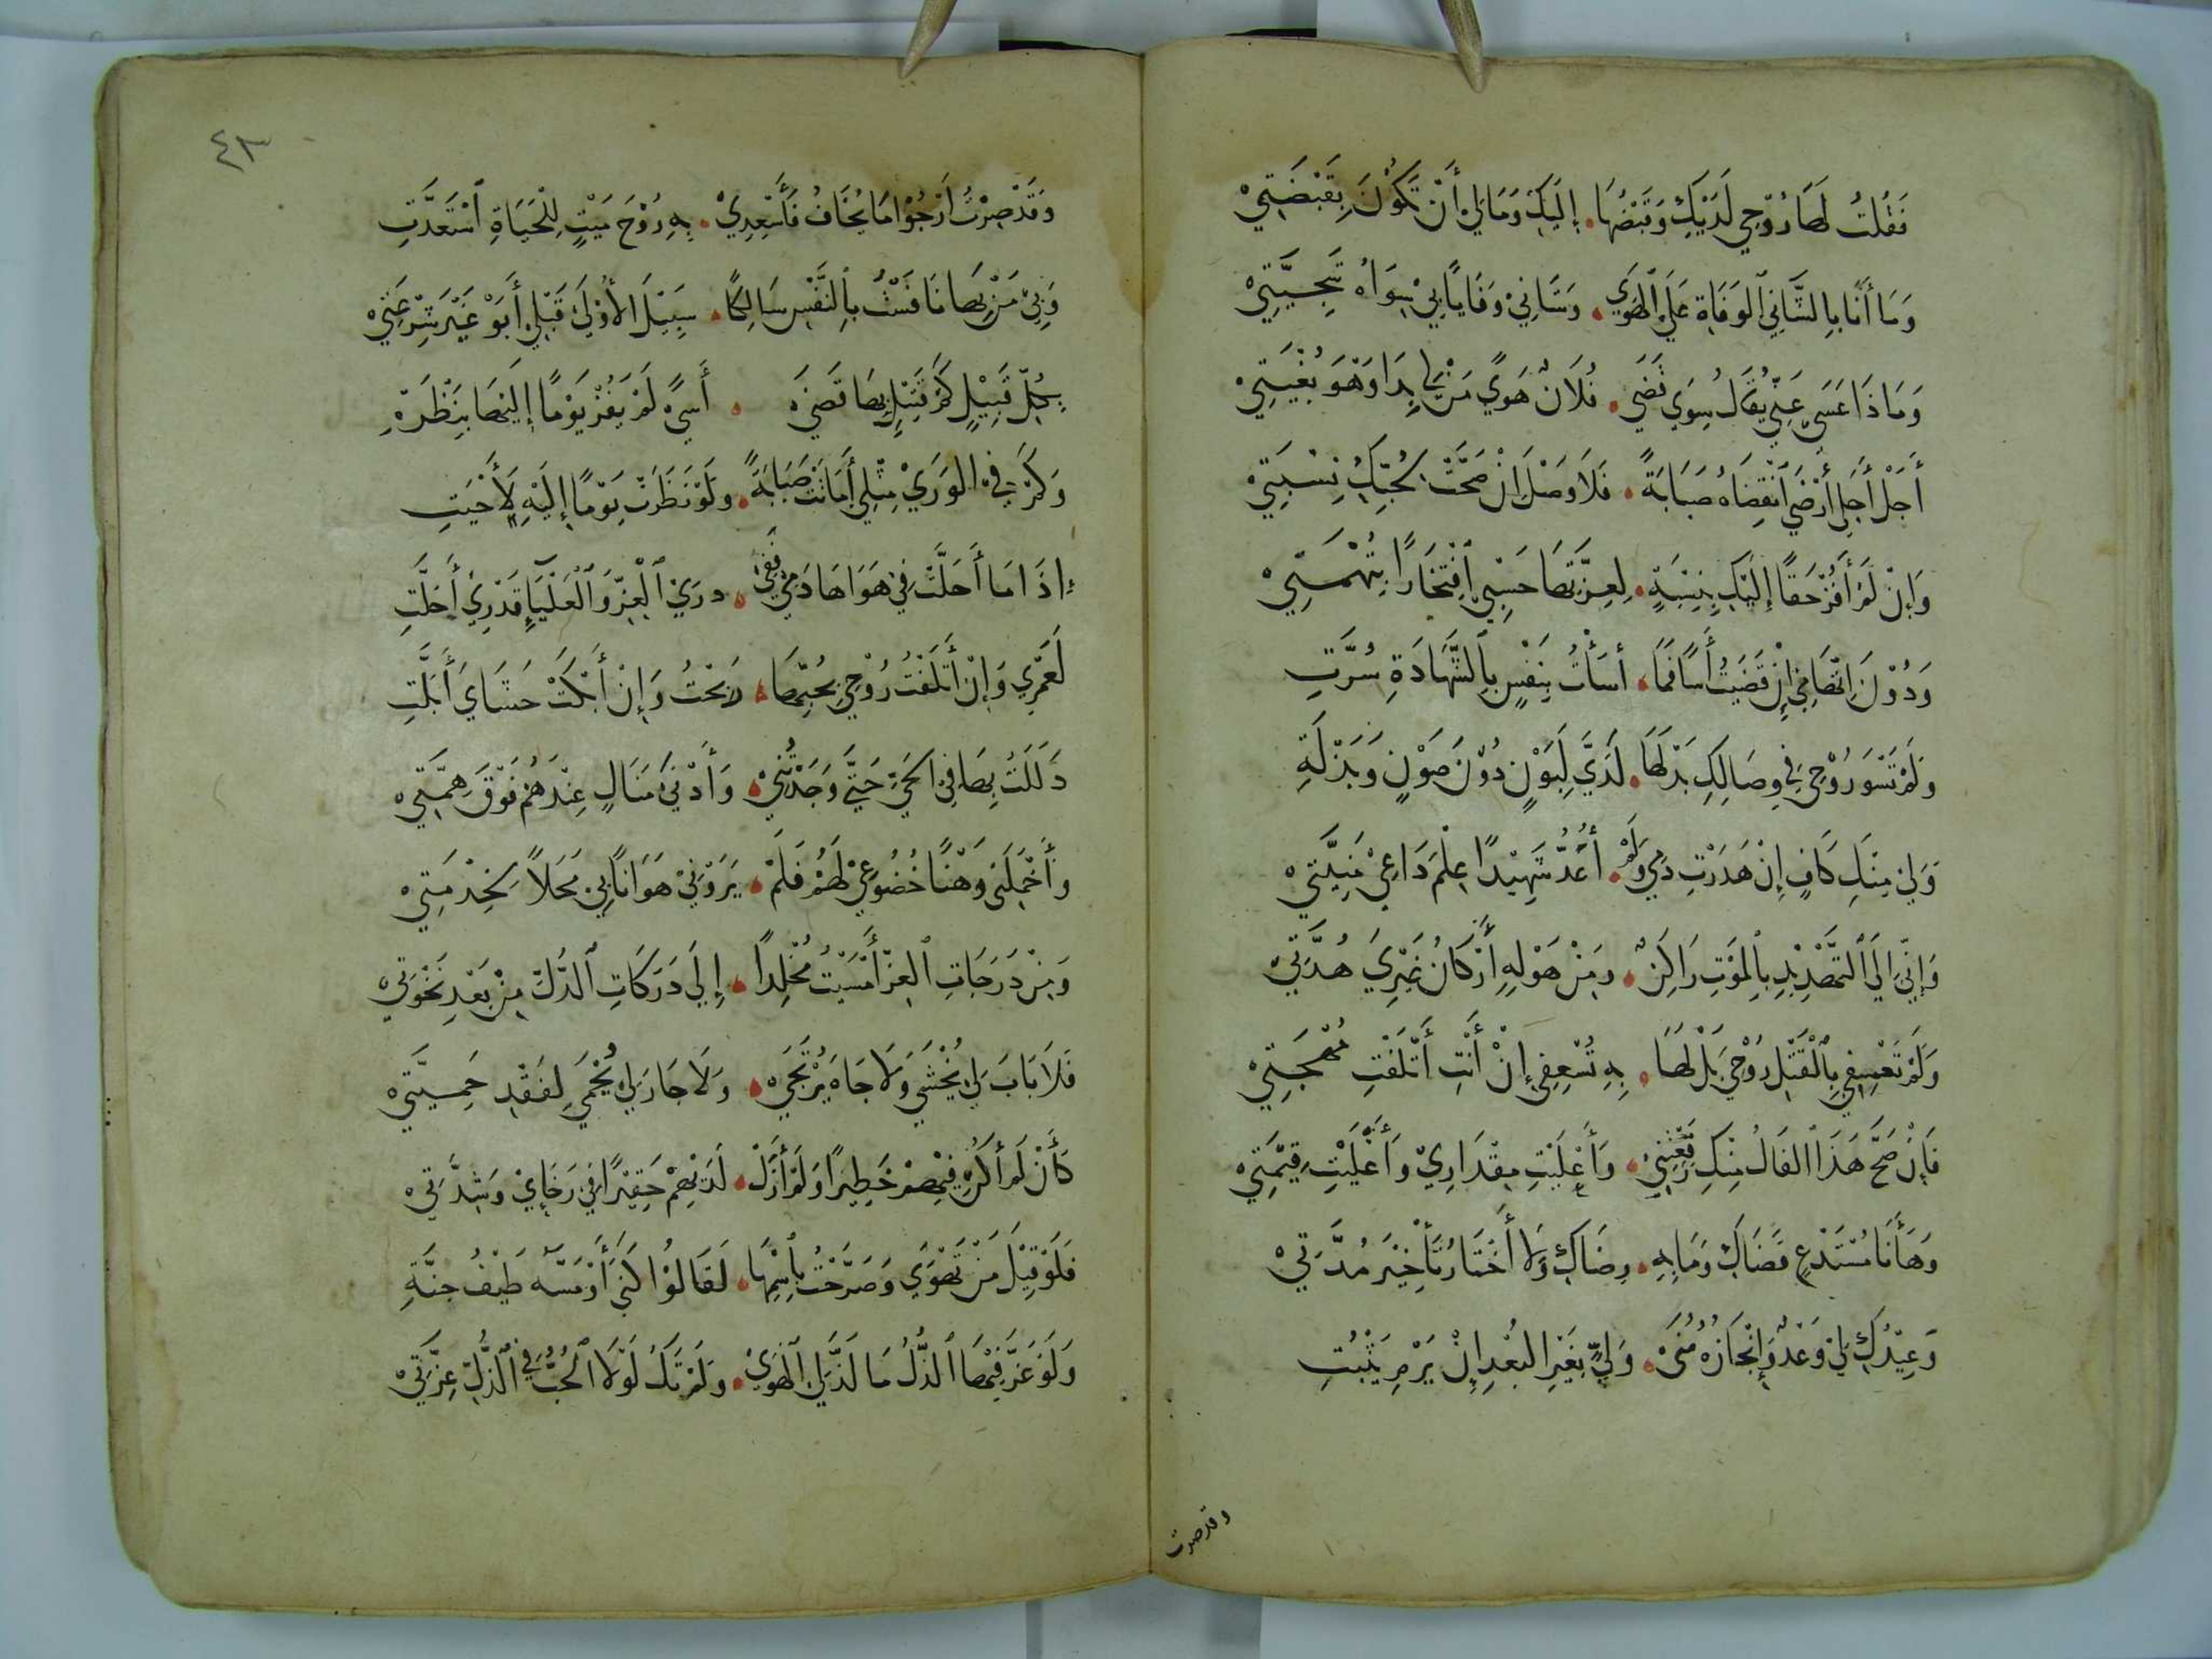 فَقُلْتُ لَهَا رُوْحِي لَدَيْكِ وَقَبْضُهَا. إِلَيْكِ وَمَا لِيْ أَنْ تَكُوْنَ بِقَبْضَتِيْ
وَمَا أَنَا بِالشَّانِي الوَفَاةَ عَلَى الهَوَى. وَشَانِيْ وَفَايَا بِيْ سِوَاهُ سَجِيَّتِيْ
وَمَاذَا عَسَى عَنِّي يُقَالُ سِوَى قَضَى. فُلَانٌ هَوًى مَنْ لِي بِذَا وَهْوَ بُغْيَتِيْ
أَجَلْ أَجَلِي أَرْضَى انْقِضَاهُ صَبَابَةً. فَلَا وَصْلَ انْ صَحَّتْ لِحُبِّكِ نِسْبَتِيْ
وَإِنْ لَمْ أَفُزْ حَقًا إِلَيْكِ بِنِسْبَةٍ. لِعِزَّتِهَا حَسْبِي افْتِخَارًا بِتُهْمَتِيْ
وَدُوْنَ اتِّهَامِي إِنْ قَضَيْتُ أَسًا فَمَا. أَسَأْتُ بِنَفْسٍ بِالشَّهَادَةِ سُرَّتِ
وَلَمْ تَسْوَ رُوْحِي فِي وِصَالِكِ بَذْلَهَا. لَدَيَّ لِبَوْنٍ دُوْنَ صَوْنٍ وَبَذْلَةِ
وَلِيْ مِنْكِ كَافٍ إِنْ هَدَرْتِ دَمِي وَلَمْ. أُعَدُّ شَهِيْدًا عِلْمُ دَاعِيْ مَنِيَّتِيْ
وَإِنِّي الَى التَّهْدِيْدِ بِالْمَوْتِ رَاكِنٌ. وَمِنْ هَوْلِهِ أَرْكَانُ غَيْرِيَ هُدَّتِيْ
وَلَمْ تَعْسِفِي بِالْقَتْلِ رُوْحِيَ بَلْ لَهَا. بِهِ تُسْعِفِي إِنْ أَنْتِ أَتْلَفْتِ مُهْجَتِيْ
فَإِنْ صَحَّ هَذَا الفَالُ مِنْكِ رَفَعْتِنِيْ. وَأَعْلَيْتِ مِقْدَارِيْ وَأَغْلَيْتِ قِيْمَتِيْ
وَهَأَنَا مُسْتَدْعٍ قَضَاكِ وَمَا بِهِ. رِضَاكِ وَلَا أَخْتَارُ تَأْخِيْرَ مُدَّتِيْ
وَعِيْدُكِ لِيْ وَعْدٌ وَإِنْجَازُهُ مُنًى. وَلِيٍّ بِغَيْرِ البُعْدِ إِنْ يُرْمَ يَثْبُتِ
وقد صرت
٤٣
وَقَدْ صِرْتُ أَرْجُوْا مَا يُخَافُ فَأَسْعِدِيْ. بِهِ رُوْحَ مَيْتٍ لِلْحَيَاةِ اسْتَعَدَّتِ
وَبِيْ مَنْ بِهَا نَافَسْتُ بِالنَّفْسِ سَالِكًا. سَبِيْلَ الأُوْلَى قَبْلِي أَبَوْ غَيْرَ شِرْعَتِيْ
بِكُلِّ قَبِيْلٍ كَمْ قَتِيْلٍ بِهَا قَضَى. أَسىً لَمْ يَفُزْ يَوْمًا إِلَيْهَا بِنَظْرَةِ
وَكَمْ فِي الوَرَى مِثْلِي أَمَاتَتْ صَبَابَةً. وَلَوْ نَظَرَتْ يَوْمًا إِلَيْهِ لَأَحْيَتِ
إِذَا مَا أَحَلَّتْ فِيْ هَوَاهَا دَمِيْ فَفِيْ. ذرى الْعِزِّ وَالْعَلْيَآءِ قَدْرِيْ أَحَلَّتِ
لَعَمْرِي وَإِنْ أَتْلَفْتُ رُوْحِيْ بِحُبِّهَا. رَبِحْتُ وَإِنْ أَبْكَتْ حَشَايَ أَبَلَّتِ
ذَلَلْتُ بِهَا فِيْ الحَيِّ حَتَّى وَجَدْتُنِيْ. وَأَدْنَى مَنَالٍ عِنْدَهُمْ فَوْقَ هِمَّتِيْ
وَأَخْمَلَنِي وَهْنًا خُضُوْعِيْ لَهُمْ فَلَمْ. يَرَوْنِيْ هَوَانًا بِيْ مَحَلاً لِخِدْمَتِيْ
وَمِنْ دَرَجَاتِ العِزِّ أَمْسَيْتُ مُخْلِدًا. إِلَى دَرَكَاتِ الذُّلِّ مِنْ بَعْدِ نَخْوَتِيْ
فَلَا بَابَ لِيْ يُخْشَى وَلَا جَاهَ يُرْتَجَى. وَلَا جَارَ لِيْ يُحْمَى لِفَقْدِ حَمِيَّتِيْ
كَأَنْ لَمْ أَكُنْ فِيْهِمْ خَطِيْرًا وَلَمْ أَزَلْ. لَدَيْهِمْ حَقِيْرًا فِيْ رَخَايْ وَشِدَّتِيْ
فَلَوْ قِيْلَ مَنْ تَهْوَى وَصَرَّحْتُ بِاسْمِهَا. لَقَالُوْا كَنَى أَوْ مَسَّهُ طَيْفُ جِنَّةِ
وَلَوْ عَزَّ فِيْهَا الذُّلُ مَا لَذَّ لِي الهَوَى. وَلَمْ تَكُ لَوْلَا الحُبُّ فِي الذُّلِّ عِزَّتِيْ